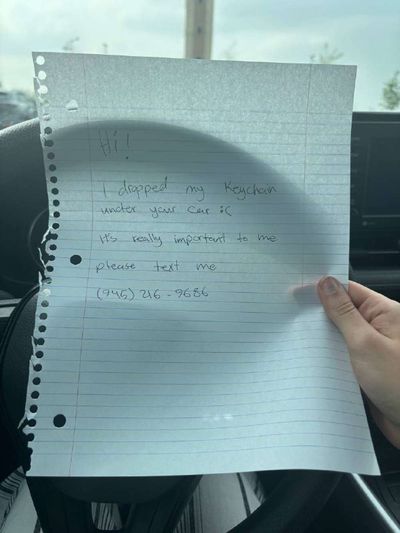 Hi!
I dropped my Keychain
under your car :(
It's really important to me
please text me
(945) 216-9686